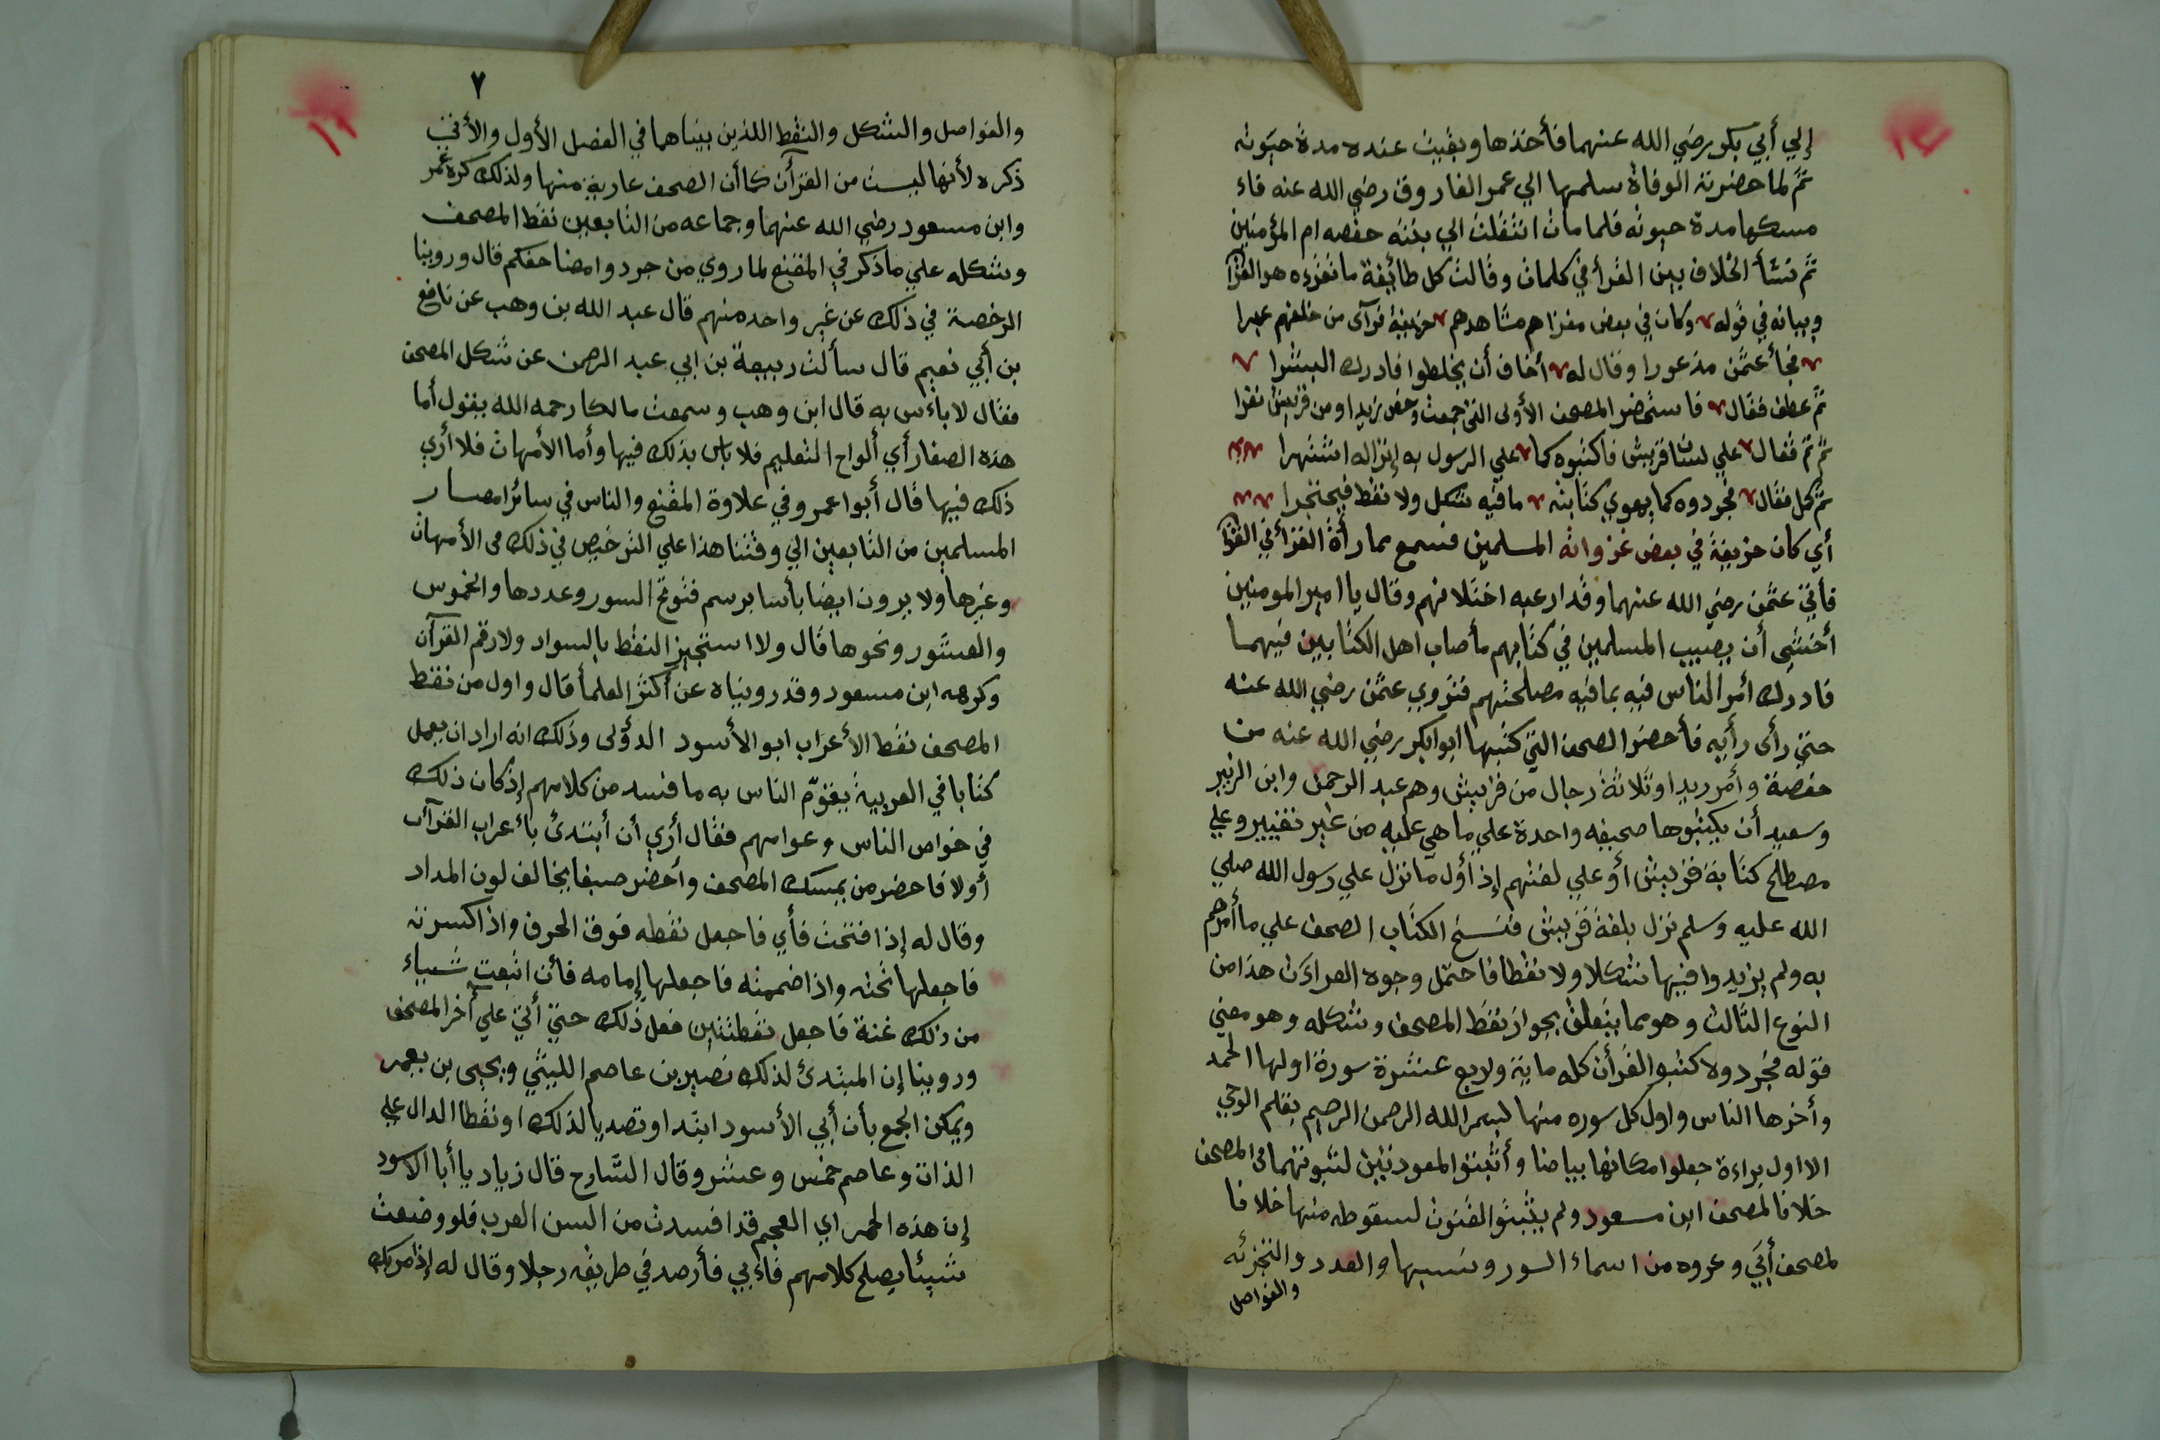 إلي أبي بكر رضي الله عنهما فأخذها وبقيت عنده مدة حيوته
ثم لما حضرته الوفاة سلمها الي عمر الفاروق رضي الله عنه فاء
مسكها مدة حيوته فلما مات انتقلت الي بنته حفصه ام المؤمنين
ثم نشأ الخلاف بين القرأ في كلمات وقالت كل طائفة ما نقرءه هو القرآ
وبيانه في قوله وكان في بعض مغزاهم مشاهدهم حذيفة فرآى من خلفهم عبرا
فجأ عثمن مذعورا وقال له أخاف أن يخلطوا فادرك البشرا
ثم عطف فقال فاستحضر المصحف الأولى التي جمعت وخص زيدا ومن قريش نفرا
ثم ثم فقال علي لسان قريش فاكتبوه كما علي الرسول به إنزاله انتشرا
ثم كل فقال فجردوه كما يهوي كتابته ما فيه شكل ولا نقط فيحتجرا
أي كان حذيفة في بعض غزواته المسلمين فسمع مماراة القرأ في القرآ
فأتي عثمن رضي الله عنهما وقد ارعبه اختلافهم وقال يا امير المومنين
أخشى أن يصيب المسلمين في كتابهم ما أصاب اهل الكتابين فيهما
فادرك أمر الناس فيه بما فيه مصلحتهم فتروي عثمن رضي الله عنه
حتي رأى رأيه فأحضر الصحف التي كتبها ابوابكر رضي الله عنه من
حفصة وأمر زيدا وثلاثة رجال من قريش وهم عبد الرحمن وابن الزبير
وسعيد أن يكتبوها صحيفه واحدة علي ما هي عليه من غير تغيير وعلي
مصطلح كتابة قريش أو علي لغتهم إذ أول ما نزل علي رسول الله صلي
الله عليه وسلم نزل بلغة قريش فنسخ الكتاب الصحف علي ما أمرهم
به ولم يزيدوا فيها شكلا ولا نقطا فاحتمل وجوه القراءت هذا من
النوع الثالث وهو مما يتعلق بجواز نقط المصحف وشكله وهو معني
قوله فجردوه كتبو القرأن كله ماية ولاربع عشرة سورة اولها الحمد
وأخرها الناس واول كل سوره منها لبسم الله الرحمن الرحيم بقلم الوحي
الااول براءة جعلوا مكانها بياضا وأثبتو المعوذتين لثبوتهما في المصحف
خلافا لمصحف ابن مسعود ولم يثبتوا القنوت لسقوطه منها خلافا
لمصحف أبي وعروه من اسماء السور ونسبها والعدد والتجزئه
والفواصل
٧
والفواصل والشكل والنقط اللذين بيناهما في الفصل الأول والأتي
ذكره لأنها ليست من القرآن كاأن الصحف عارية منها ولذلك كره عمر
وابن مسعود رضي الله عنهما وجماعه من التابعين نقط المصحف
وشكله علي ما ذكر في المقنع لما روي من جردوا مصاحفكم قال وروينا
الرخصة في ذلك عن غير واحد منهم قال عبد الله بن وهب عن نافع
بن أبي نعيم قال سألت ربيعة بن ابي عبد الرحمن عن شكل المصحف
فقال لاباءس به قال ابن وهب وسمعت مالكا رحمه الله يقول أما
هذه الصغار أي ألواح التعليم فلا باس بذلك فيها وأما الأمهات فلا أري
ذلك فيها قال أبوا عمرو في علاوة المقنع والناس في سائر امصار
المسلمين من التابعين الي وقتنا هذا علي الترخيص في ذلك في الأمهات
وغيرها ولا يرون ايضا بأسا برسم فتوتح السور وعددها والخموس
والعشور ونحوها قال ولا استجيز النقط بالسواد ولا رقم القرآن
وكرهه ابن مسعود وقد رويناه عن أكثر العلمأ قال واول من نقط
المصحف نقط الأعراب ابو الأسود الدؤلى وذلك انه اراد ان يعمل
كتابا في العربية يقوّم الناس به ما فسد من كلامهم إذ كان ذلك
في خواص الناس وعوامهم فقال أري أن أبتدئ باءعراب القرآن
أولا فاحضر من يمسك المصحف وأحضر صبغا يخالف لون المداد
وقال له إذا فتحت فأي فاجعل نقطه فوق الحرف واذا كسرته
فاجعلها تحته واذا ضممته فاجعلها إمامه فأن اتبعت شياء
من ذلك غنة فاجعل نقطتين فعل ذلك حتي أتي علي أخر المصحف
وروينا إن المبتدئ لذلك نصير بن عاصم الليثي ويحيى بن يعمر
ويمكن الجمع بأن أبي الأسود ابتداو تصديا لذلك او نقطا الدال علي
الذات وعاصم خمس وعشر وقال الشارح قال زياد يا أبا الاسود
إن هذه الحمر اي العجم قد افسدت من السن العرب فلو وضعت
شيئا يصلح كلامهم فاءبي فأرصد في طريقه رجلا وقال له إذا مر بك